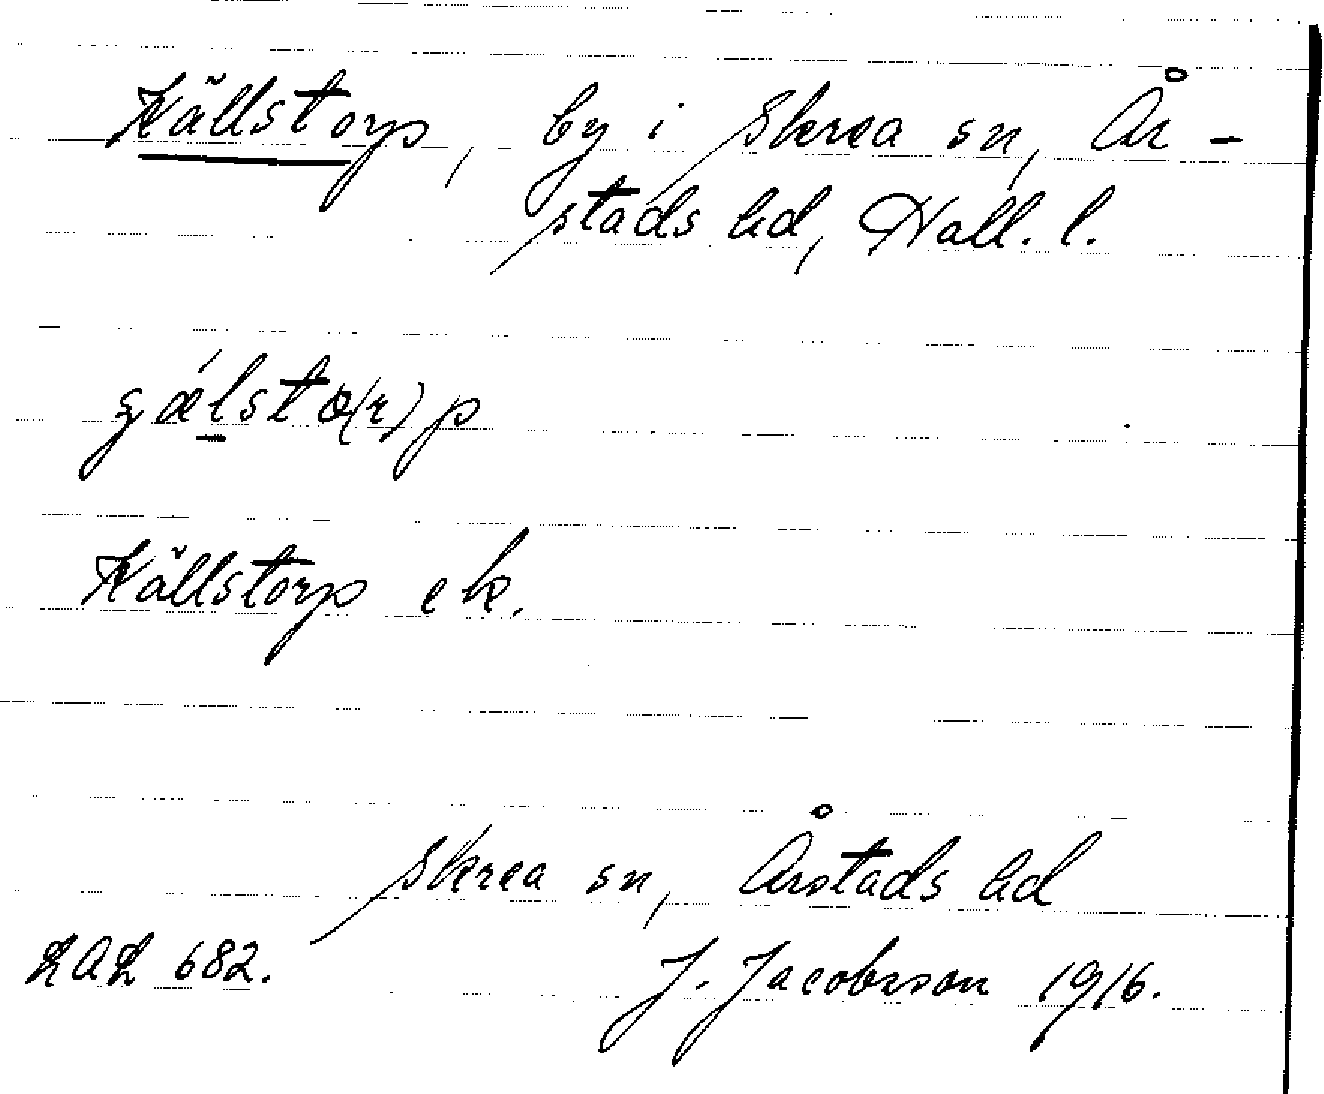 Källstorp, by i Skrea sn, År-
stads hd, Hall. l.
gǽlsto(r)p
Källstorp ek.
Skrea sn, Årstads hd
LAL 682.
J. Jacobsson 1916.